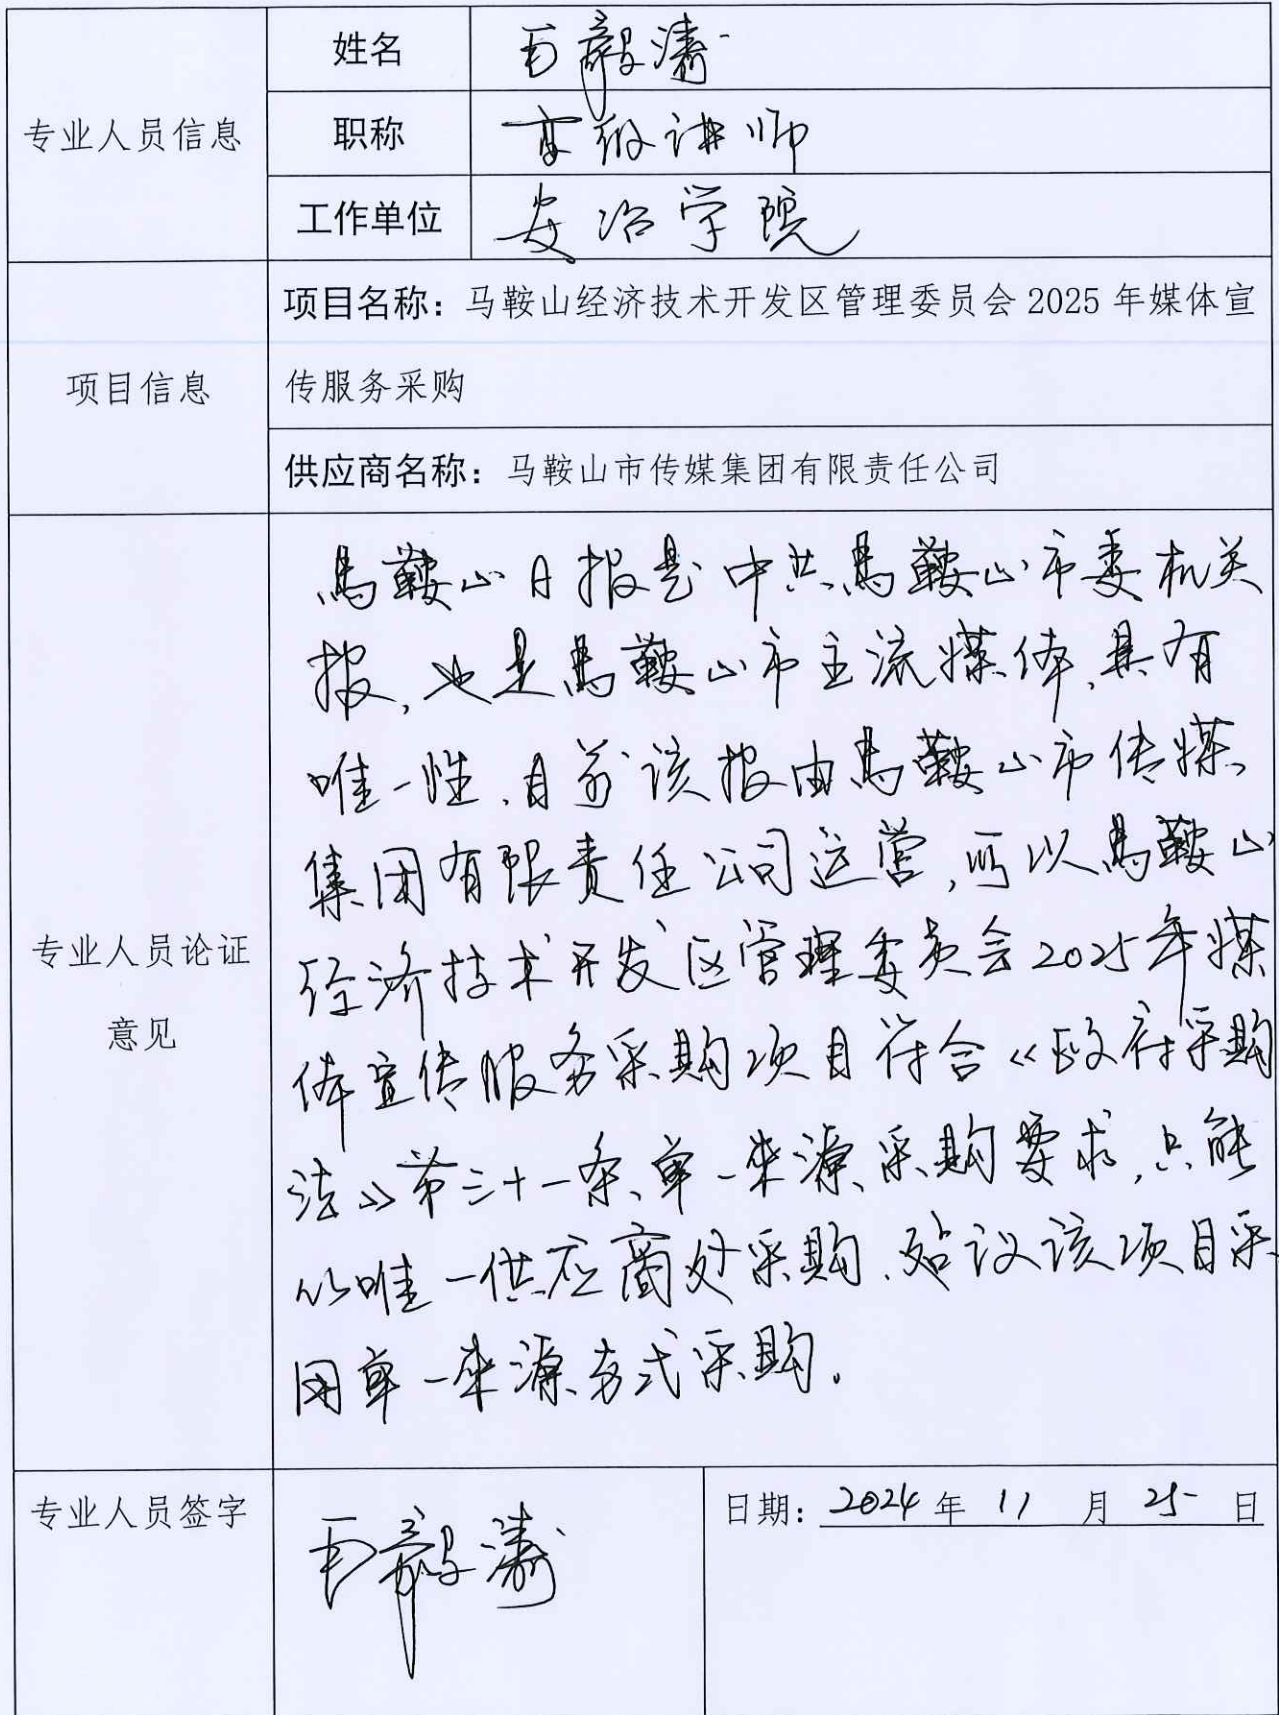 专业人员信息
姓名 毛毅涛
职称 高级讲师
工作单位 安冶学院
项目信息
项目名称：马鞍山经济技术开发区管理委员会 2025 年媒体宣
传服务采购
供应商名称：马鞍山市传媒集团有限责任公司
专业人员论证
意见
馬鞍山日报是中共馬鞍山市委机关
报，也是馬鞍山市主流媒体，具有
唯一性，目前该报由馬鞍山市传媒
集团有限责任公司运营，所以馬鞍山
经济技术开发区管理委员会2025年媒
体宣传服务采购项目符合《政府采购
法》第三十一条、单一来源采购要求，只能
从唯一供应商处采购，建议该项目采
用单一来源方式采购。
专业人员签字
毛毅涛
日期：2024 年 11 月 25 日